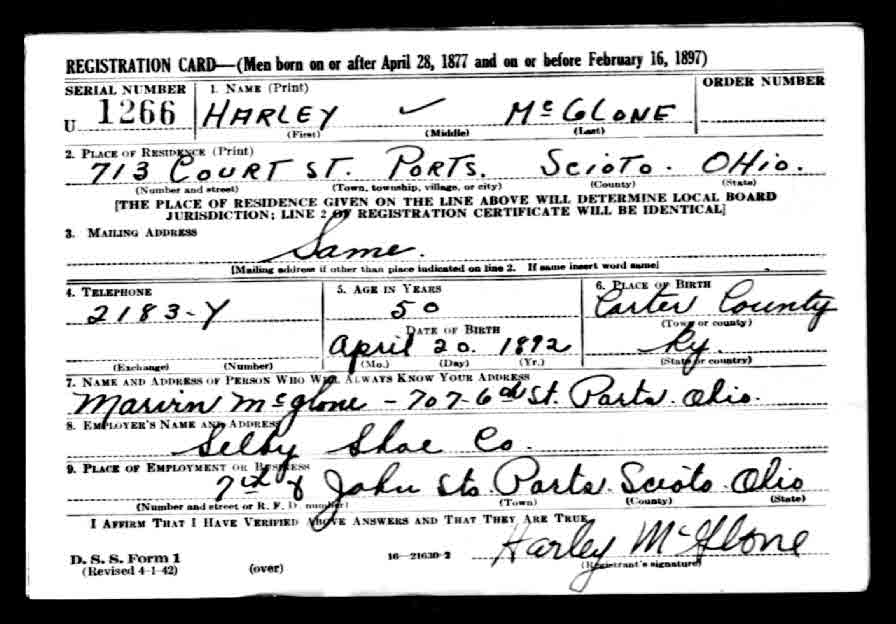 REGISTRATION CARD—(Men born on or after April 28, 1877 and on or before February 16, 1897)
SERIAL NUMBER 1. NAME (Print) ORDER NUMBER
U 1266 HARLEY ✓ McGLONE
(First) (Middle) (Last)
2. PLACE OF RESIDENCE (Print)
713 COURT ST. PORTS. SCIOTO. OHIO.
(Number and street) (Town, township, village, or city) (County) (State)
[THE PLACE OF RESIDENCE GIVEN ON THE LINE ABOVE WILL DETERMINE LOCAL BOARD
JURISDICTION; LINE 2 OF REGISTRATION CERTIFICATE WILL BE IDENTICAL]
3. MAILING ADDRESS
Same.
[Mailing address if other than place indicated on line 2. If same insert word same]
4. TELEPHONE 5. AGE IN YEARS 6. PLACE OF BIRTH
2183-Y 50 Carter County
DATE OF BIRTH (Town or county)
April 20. 1892 Ky.
(Exchange) (Number) (Mo.) (Day) (Yr.) (State or country)
7. NAME AND ADDRESS OF PERSON WHO WILL ALWAYS KNOW YOUR ADDRESS
Marvin McGlone - 707-6th St. Ports. Ohio.
8. EMPLOYER'S NAME AND ADDRESS
Selby Shoe Co.
9. PLACE OF EMPLOYMENT OR BUSINESS
7th & John Sts. Ports. Scioto. Ohio
(Number and street or R. F. D. number) (Town) (County) (State)
I AFFIRM THAT I HAVE VERIFIED ABOVE ANSWERS AND THAT THEY ARE TRUE.
Harley McGlone
D. S. S. Form 1 16—21630-2 (Registrant's signature)
(Revised 4-1-42) (over)